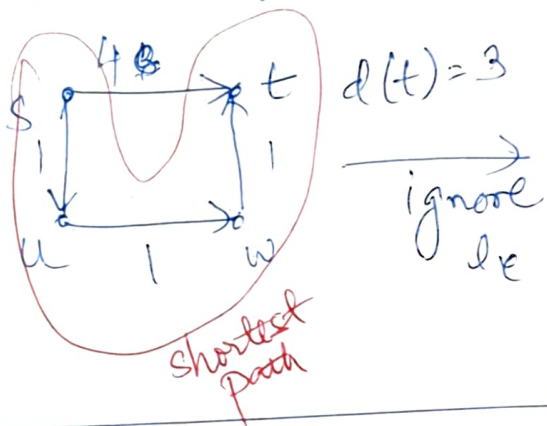 4
s t d(t) = 3
1 1
ignore
u 1 w l_e
shortest
path